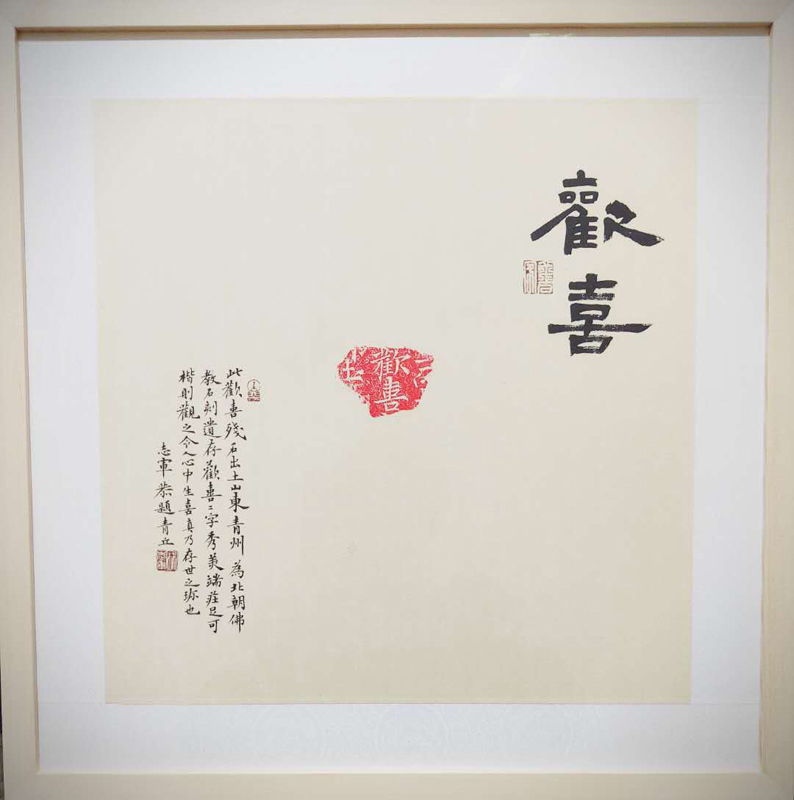 歡
喜
歡喜
此歡喜殘石出土山東青州為北朝佛
教石刻遺存歡喜二字秀美端莊足可
楷則觀之令人心中生喜真乃存世之珍也
志軍恭題青丘